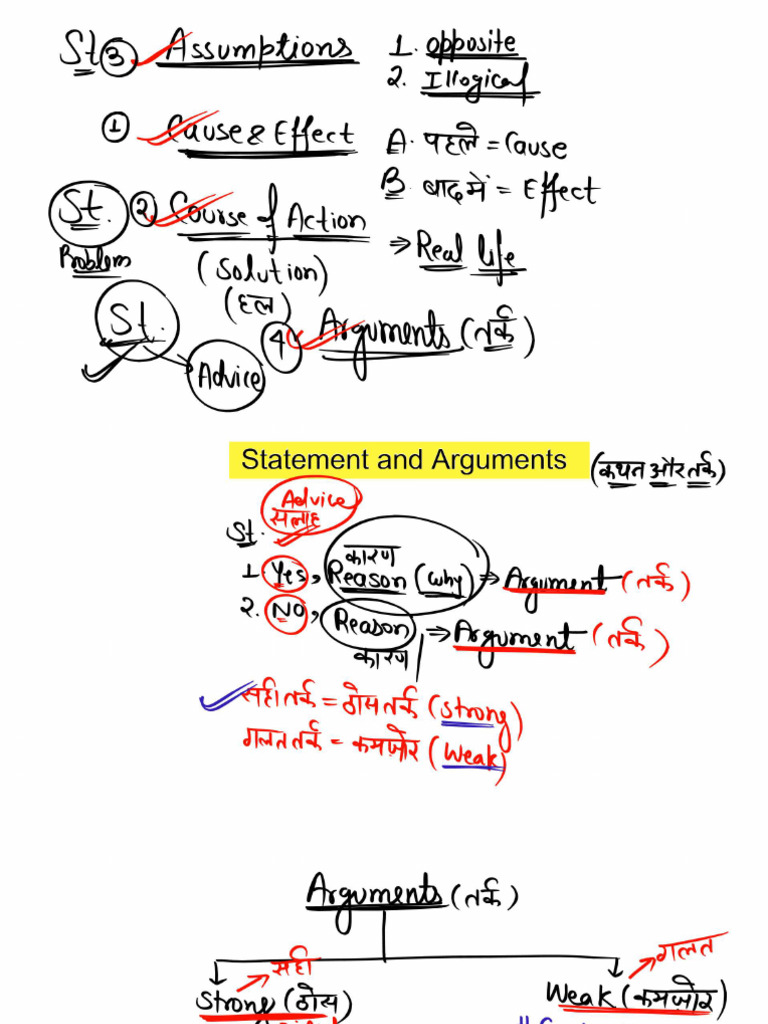 St ③ Assumptions 1. opposite
2. Illogical
① Cause & Effect A. पहले = Cause
B. बाद में = Effect
St. ② Course of Action ⇒ Real life
Problem (Solution)
(हल)
St. Advice ④ Arguments (तर्क)
Statement and Arguments (कथन और तर्क)
Advice
सलाह
St.
कारण
1. Yes, Reason (why) ⇒ Argument (तर्क)
2. NO, Reason ⇒ Argument (तर्क)
कारण
सही तर्क = ठोस तर्क (Strong)
गलत तर्क = कमज़ोर (Weak)
Arguments (तर्क)
सही गलत
Strong (ठोस) Weak (कमज़ोर)